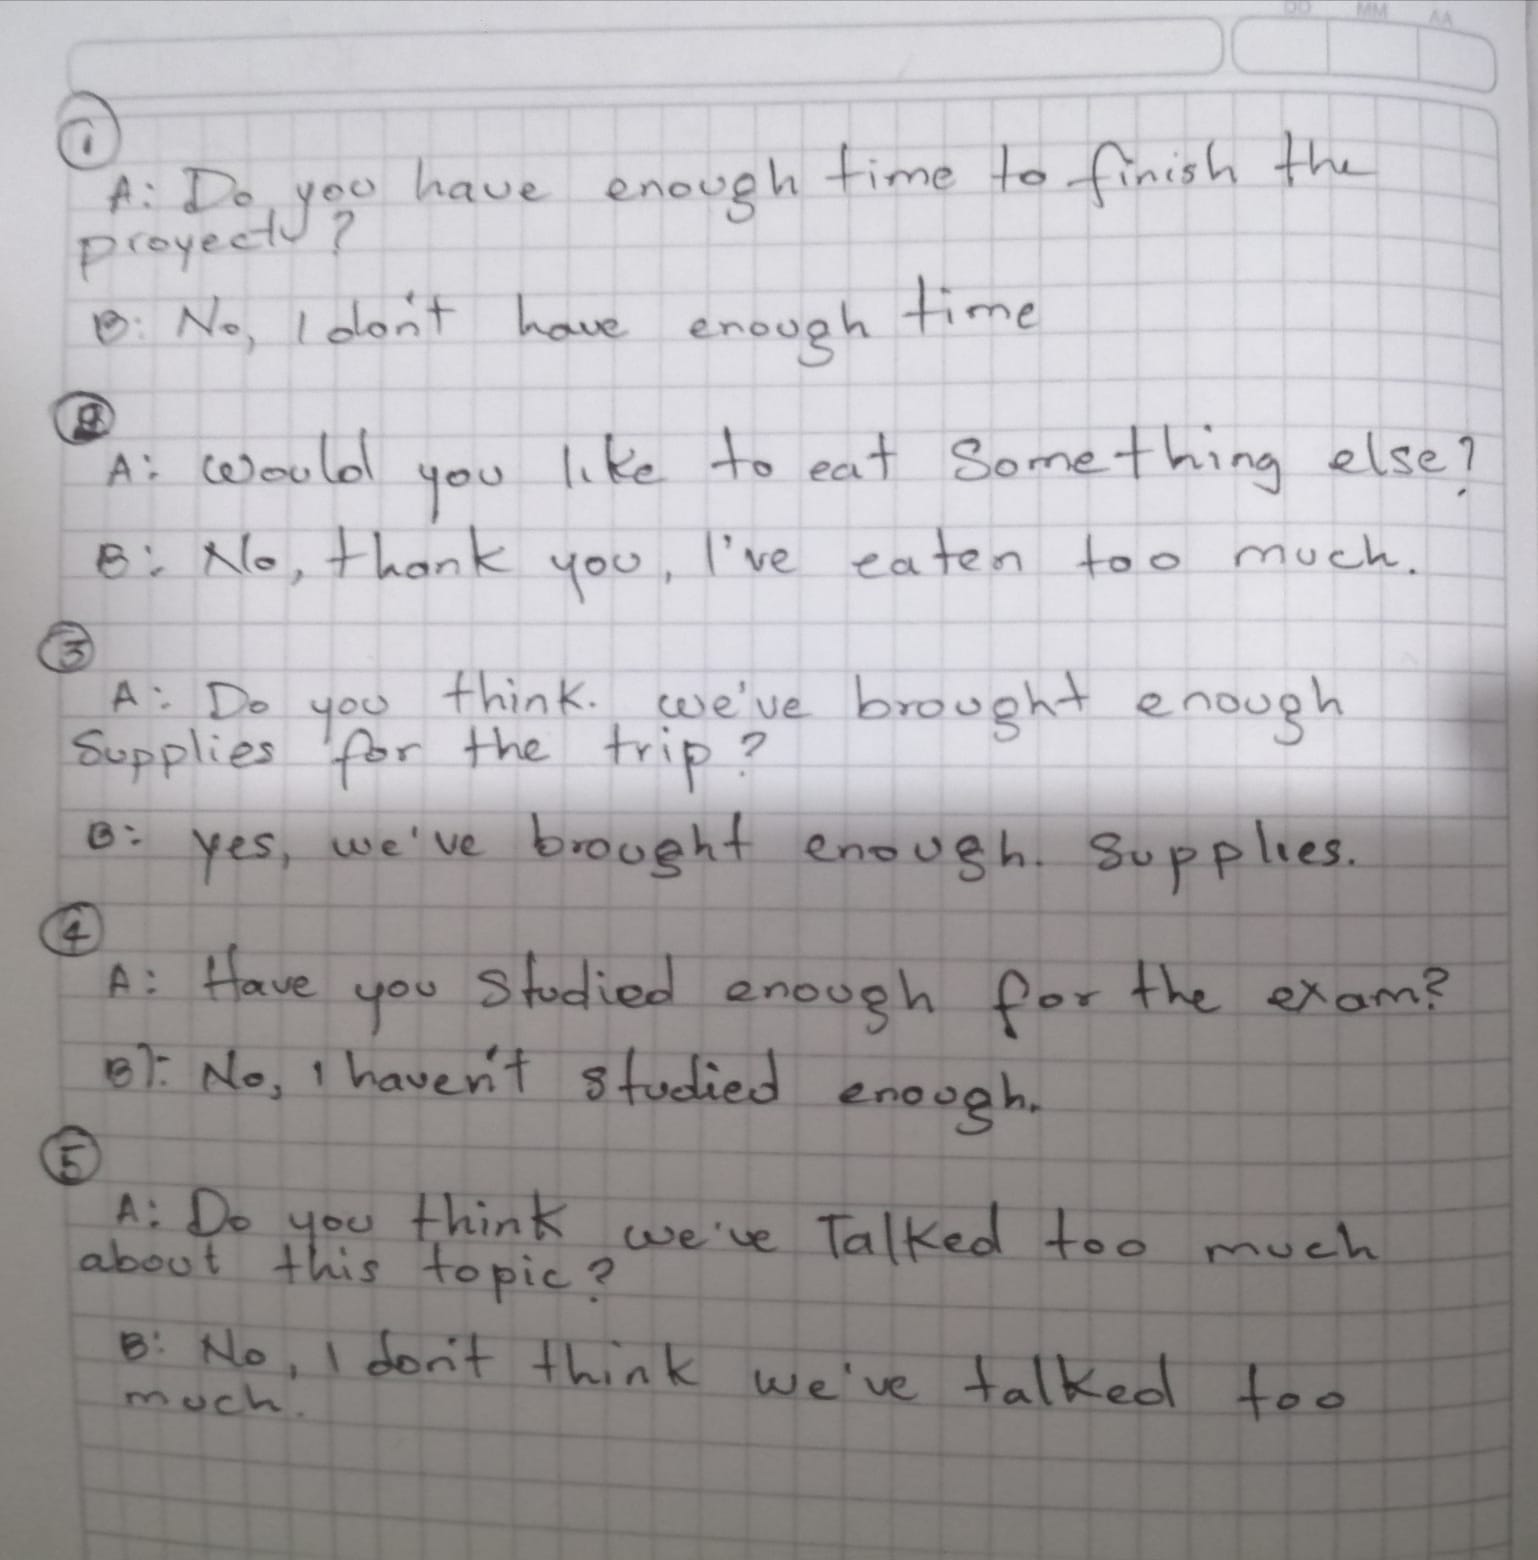 DD MM AA
1
A: Do you have enough time to finish the
proyecty?
B: No, I don't have enough time
2
A: Would you like to eat Something else?
B: No, thank you, I've eaten too much.
3
A: Do you think. we've brought enough
Supplies for the trip?
B: yes, we've brought enough. Supplies.
4
A: Have you Studied enough for the exam?
B): No, I haven't studied enough.
5
A: Do you think we've Talked too much
about this topic?
B: No, I don't think we've talked too
much.